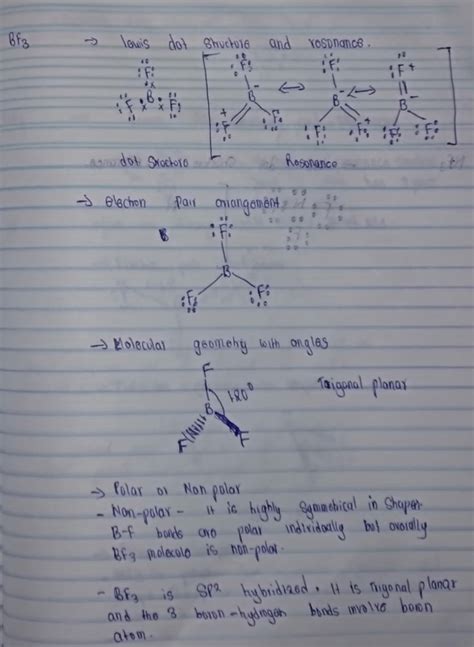 BF3 → lewis dot structure and resonance.
F
F B F
F
B-
+F F
↔
F
B-
F F+
↔
F+
B-
F F
dot Structure Resonance
→ electron pair arrangement
F
B
F F
→ Molecular geometry with angles
F
120° Trigonal planar
B
F F
→ Polar or Non polar
- Non-polar - It is highly symmetrical in shape.
B-f bonds are polar individually but overally
BF3 molecule is non-polar.
- BF3 is SP2 hybridized. It is Trigonal planar
and the 3 boron-hydrogen bonds involve boron
atom.